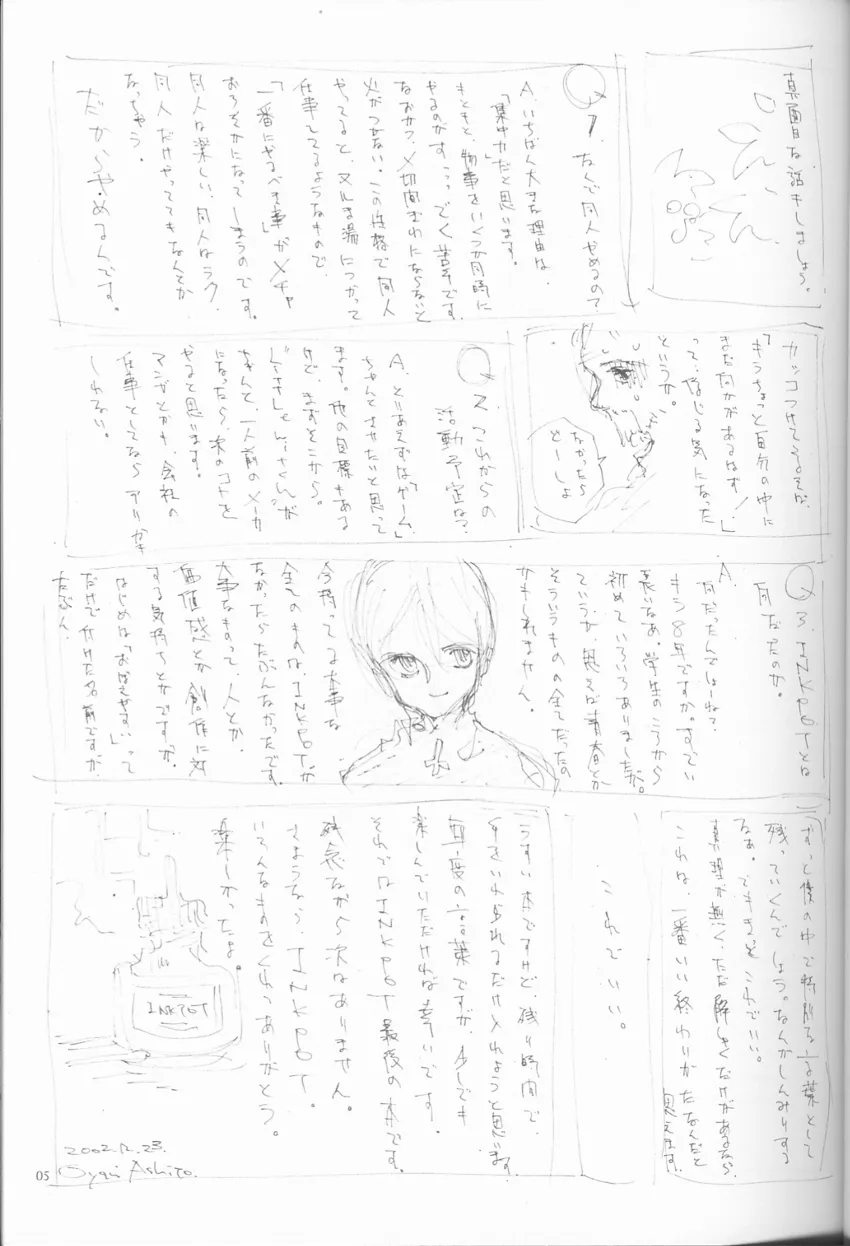 真面目な話をしましょう。
Q1. なんで同人やめるの?
A. いちばん大きな理由は、
「集中力」だと思います。
もともと、物事をいくつか同時に
やるのがすっっごく苦手です。
なおかつ、〆切間ぎわにならないと
火がつかない。この性格で同人
やってると、ヌルま湯につかって
仕事してるようなもので、
「一番にやるべき事」がメチャ
おろそかになってしまうのです。
同人は楽しい、同人はラク、
同人だけやっててもなんとか
なっちゃう。
だからやめるんです。
カッコつけてるようだが、
「もうちょっと自分の中に
まだ何かがあるはず!」
って、信じる気になった
というか。
なかったら
どーしよ
Q2. これからの
活動予定は?
A. とりあえずは「ゲーム」
ちゃんとさせたいと思って
ます。他の目標もある
けど、まずそこから。
ちゃんと、一人前のメーカ
になったら、次のコトを
やると思います。
マンガとかも、会社の
仕事としてならアリかも
しれない。
Q3. INKPOTとは
何だったのか。
A.
何だったんでしょーね?
もう8年ですか。すごい
長いなあ。学生のころから
初めていろいろありましたが。
ていうか、思えば青春とか
そういうものの全てだったの
かもしれません。
今持ってる大事な
全てのものは、INKPOTが
なかったらたぶんなかったです。
大事なものって、人とか、
価値感とか創作に対
する気持ちとかですが。
はじめは「おぼえやすい」って
だけで付けた名前ですが、
たぶん、
ずっと僕の中で特別な言葉として
残っていくんでしょう。なんかしんみりする
なぁ。でもまぁこれでいい。
真理が無く、ただ解しくだけがあるなら、
これは、一番いい終わりかたなんだと
思えます。
これでいい。
うすい本ですけど、残り時間で、
手をいれられるだけ入れようと思います。
毎度の言葉ですが、少しでも
楽しんでいただければ幸いです。
それではINKPOT最後の本です。
残念ながら次はありません。
さようなら、INKPOT。
いろんなものをくれてありがとう。
楽しかったよ。
INKPOT
2002.12.23.
Oyari Ashito.
05